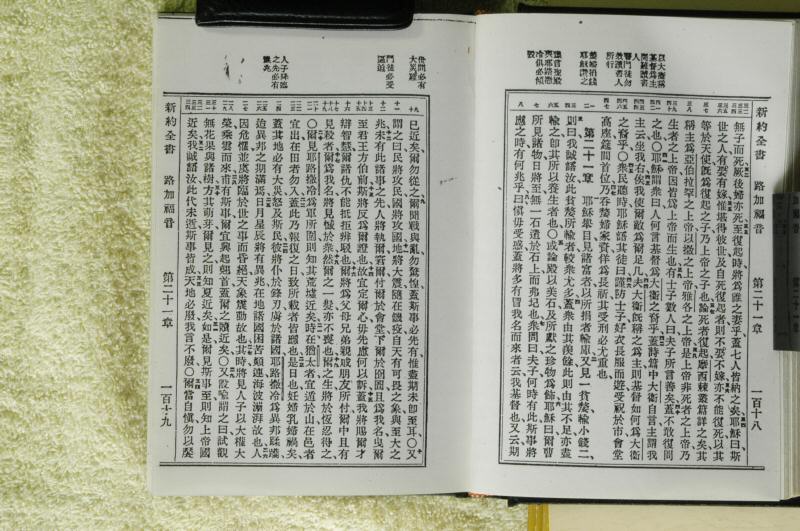 新約全書 路加福音 第二十一章 一百十八
以大衞稱
基督爲主
警門徒勿
效讀書人
所行
嫠婦捐錢
耶穌讚之
預言聖殿
與耶路撒
冷俱必傾
無子而死厥後婦亦死至復起時將爲誰之妻乎蓋七人皆納之矣耶穌曰斯
世之人有娶有嫁惟堪得彼世及自死復起者則不娶不嫁亦不能復死以其
等於天使旣爲復起之子乃上帝之子也論死者復起摩西棘叢篇詳之矣其
稱主爲亞伯拉罕之上帝以撒之上帝雅各之上帝是上帝非死者之上帝乃
生者之上帝因皆爲上帝而生也有士子數人曰夫子所言善矣蓋不敢復問
之也○耶穌問衆曰人何言基督爲大衞之裔乎蓋詩篇中大衞自言主謂我
主云坐我右俟我使爾敵爲爾足几夫大衞旣稱之爲主則基督如何爲大衞
之裔乎○衆民聽時耶穌語其徒曰謹防士子好衣長服而遊受祝於市會堂
高座筵間首位乃呑嫠婦家資佯爲長祈其受刑必尤重也
第二十一章 耶穌舉目見諸富者以所捐者輸庫又見一貧嫠輸小錢二
則曰我誠語汝此貧嫠所輸者較衆尤多蓋衆由其羨餘此則由其不足亦盡
輸之卽其所以養生者也○或論殿以美石及所獻之珍物爲飾耶穌曰爾曹
所見諸物日將至無一石遺於石上而弗圮也衆問曰夫子何時有此斯事將
應之時有何兆乎曰愼毋受惑蓋將多有冒我名而來者云我基督也又云期
世間必有
大災難
門徒必受
逼迫
人子降臨
之先必有
徵兆
已近矣爾勿從之爾聞戰與亂勿驚惶蓋斯事必先有惟盡期未卽至耳○又
謂之曰民將攻民國將攻國地將大震隨在饑疫自天有可畏之象與至大之
兆未有此諸事之先人將執爾窘爾付爾於會堂下爾於囹圄且爲我名曳爾
至君王方伯前斯將反爲爾證也故宜定爾心毋先慮何以訴蓋我將賜爾才
辯智慧爾諸仇不能抵拒辯駁也爾將爲父母兄弟親戚朋友所付爾中且有
見殺者爾爲我名將見憾於衆然爾之一髮亦不喪也爾之生將於恆忍得之
○爾見耶路撒冷爲軍所圍則知其荒墟近矣時在猶太者宜遁於山在邑者
宜出在田者勿入蓋此乃報復之日致所載者皆應也是日也妊婦乳婦禍矣
蓋其地必有大災怒及斯民彼將仆於鋒刃虜於諸國耶路撒冷爲異邦蹂躪
迨異邦之期滿焉日月星辰將有異兆在地諸國困苦顛連海波澎湃故也人
因危懼並虞將臨於世之事而昏絕天象震動故也其時將見人子以大權大
榮乘雲而來甫有斯事爾宜興起翹首蓋爾之贖近矣○又設喩謂之曰試觀
無花果與諸樹方其萌芽爾見之則知夏近矣如是爾見斯事至則知上帝國
近矣我誠語汝此代未逝斯事皆成天地必廢我言不廢○爾當自愼勿以饜
新約全書 路加福音 第二十一章 一百十九